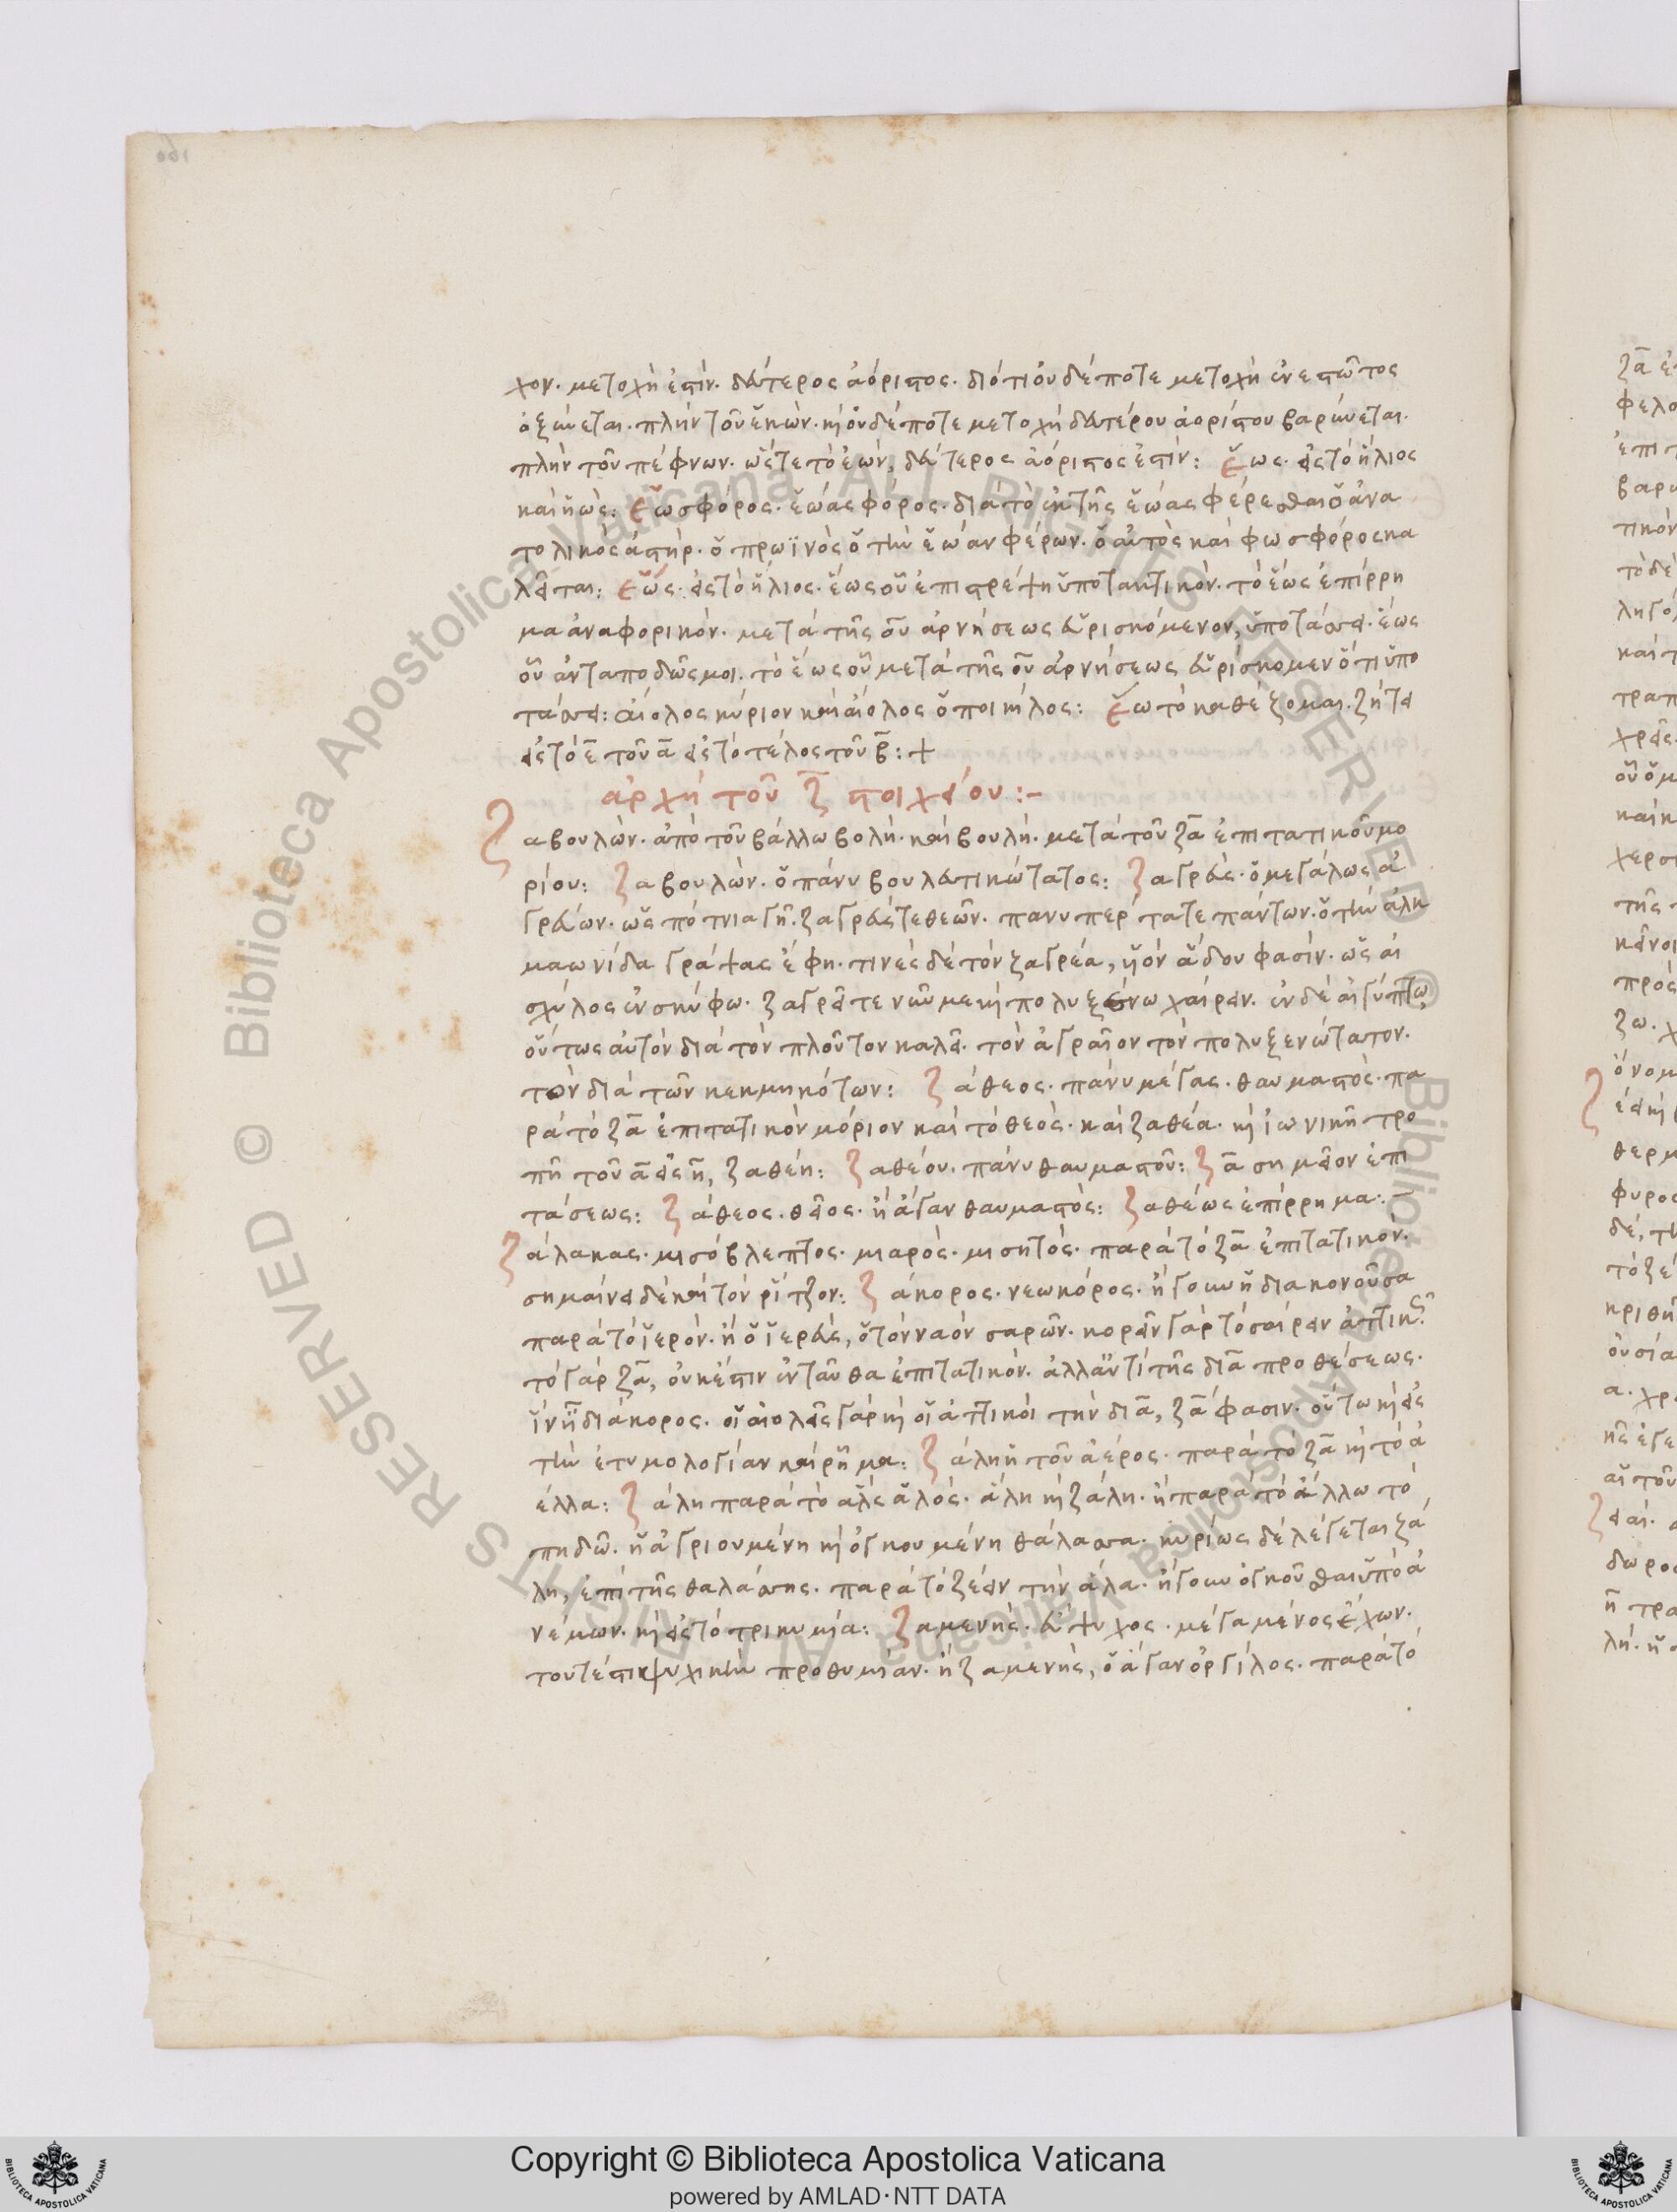 χον· μετοχή ἐστίν· δεύτερος ἀόριστος· διότι οὐδέποτε μετοχὴ ἐνεστῶτος
ὀξύνεται· πλὴν τοῦ ἑκών· καὶ οὐδέποτε μετοχὴ δευτέρου ἀορίστου βαρύνεται·
πλὴν τοῦ πέφνων· ὥστε τὸ ἐών, δεύτερος ἀόριστος ἐστίν: ἕως· εἰς τὸ ἥλιος
καὶ ἡώς: ἑωσφόρος· ἑώας φόρος· διὰ τὸ ἐκ τῆς ἑώας φέρεσθαι ὁ ἀνα
τολικὸς ἀστήρ· ὁ πρωϊνὸς ὁ τὴν ἕω ἀναφέρων· ὁ αὐτὸς καὶ φωσφόρος κα
λεῖται: ἕως· εἰς τὸ ἥλιος· ἕως οὗ ἐπιστρέψῃ ὑποτακτικόν· τὸ ἕως ἐπίρρη
μα ἀναφορικόν· μετὰ τῆς οὐ ἀρνήσεως εὑρισκόμενον, ὑποτάσσει· ἕως
οὗ ἀνταποδῶς μοι· τὸ ἕως οὗ μετὰ τῆς οὐ ἀρνήσεως εὑρίσκομεν ὅτι ὑπο
τάσσει: αἴολος κύριον καὶ αἰόλος ὁ ποικίλος: ἕω τὸ καθέζομαι· ζήτει
εἰς τὸ ε̄ τοῦ ᾱ εἰς τὸ τέλος τοῦ β̄: +
ἀρχὴ τοῦ ζ̄ στοιχείου :-
Ζαβουλών· ἀπὸ τοῦ βάλλω βολή· καὶ βουλή· μετὰ τοῦ ζᾱ ἐπιτατικοῦ μο
ρίου: Ζαβουλών· ὁ πάνυ βουλευτικώτατος: Ζαγρεύς· ὁ μεγάλως ἀ
γρεύων· ὡς πότνια γῆ· ζαγρεύς τε θεῶν· πανυπέρτατε πάντων· ὁ τὴν ἀλκ
μαωνίδα γράψας ἔφη· τινὲς δὲ τὸν ζαγρέα, υἱὸν ἅδου φασίν· ὡς αἰ
σχύλος ἐν σισύφω· ζαγρεῖ τε νῦν με καὶ πολυξένω χαίρειν· ἐν δὲ αἰγύπτω
οὕτως αὐτὸν διὰ τὸν πλοῦτον καλεῖ· τὸν ἀγραῖον τὸν πολυξενώτατον·
τὸν διὰ τῶν κεκμηκότων: Ζάθεος· πάνυ μέγας· θαυμαστὸς· πα
ρὰ τὸ ζᾱ ἐπιτατικὸν μόριον καὶ τὸ θεὸς· καὶ ζαθέα· καὶ ἰωνικῆ τρο
πῆ τοῦ ᾱ εἰς η̄, ζαθέη: Ζαθέου· πάνυ θαυμαστοῦ: Ζᾱ σημεῖον ἐπι
τάσεως: Ζάθεος· θεῖος· ἢ ἄγαν θαυμαστὸς: Ζαθέως ἐπίρρημα:-
Ζάλακας· μισόβλεπτος· μιαρὸς· μισητὸς· παρὰ τὸ ζᾱ ἐπιτατικόν·
σημαίνει δὲ καὶ τὸν ρίτζον: Ζάκορος· νεωκόρος· ἤγουν ἡ διακονοῦσα
παρὰ τὸ ἱερόν· ἢ ὁ ἱερεύς, ὁ τὸν ναὸν σαρῶν· κορεῖν γὰρ τὸ σαίρειν ἀττικῶς
τὸ γὰρ ζᾱ, οὐκ ἔστιν ἐνταῦθα ἐπιτατικόν· ἀλλ᾽ ἀντὶ τῆς διᾱ προθέσεως·
ἵν᾽ ἦ διάκορος· οἱ αἰολεῖς γὰρ καὶ οἱ ἀττικοὶ τὴν διᾱ, ζᾱ φασιν· οὕτω καὶ εἰς
τὴν ἐτυμολογίαν καὶ ρῆμα: Ζάλη ἡ τοῦ ἀέρος· παρὰ τὸ ζᾱ καὶ τὸ ἀ
έλλα: Ζάλη παρὰ τὸ ἅλς ἁλός· ἄλη καὶ ζάλη· ἢ παρὰ τὸ ἄλλω τὸ
πηδῶ· ἡ ἀγριουμένη καὶ ὀγκουμένη θάλασσα· κυρίως δὲ λέγεται ζά
λη, ἐπὶ τῆς θαλάσσης· παρὰ τὸ ζέειν τὴν ἅλα· ἤγουν ὀγκοῦσθαι ὑπὸ ἀ
νέμων· καὶ εἰς τὸ τρικυμία: Ζαμενής· εὔψυχος· μέγα μένος ἔχων·
τουτέστι ψυχικὴν προθυμίαν· ἢ ζαμενής, ὁ ἄγαν ὀργίλος· παρὰ τὸ
Copyright © Biblioteca Apostolica Vaticana
powered by AMLAD·NTT DATA